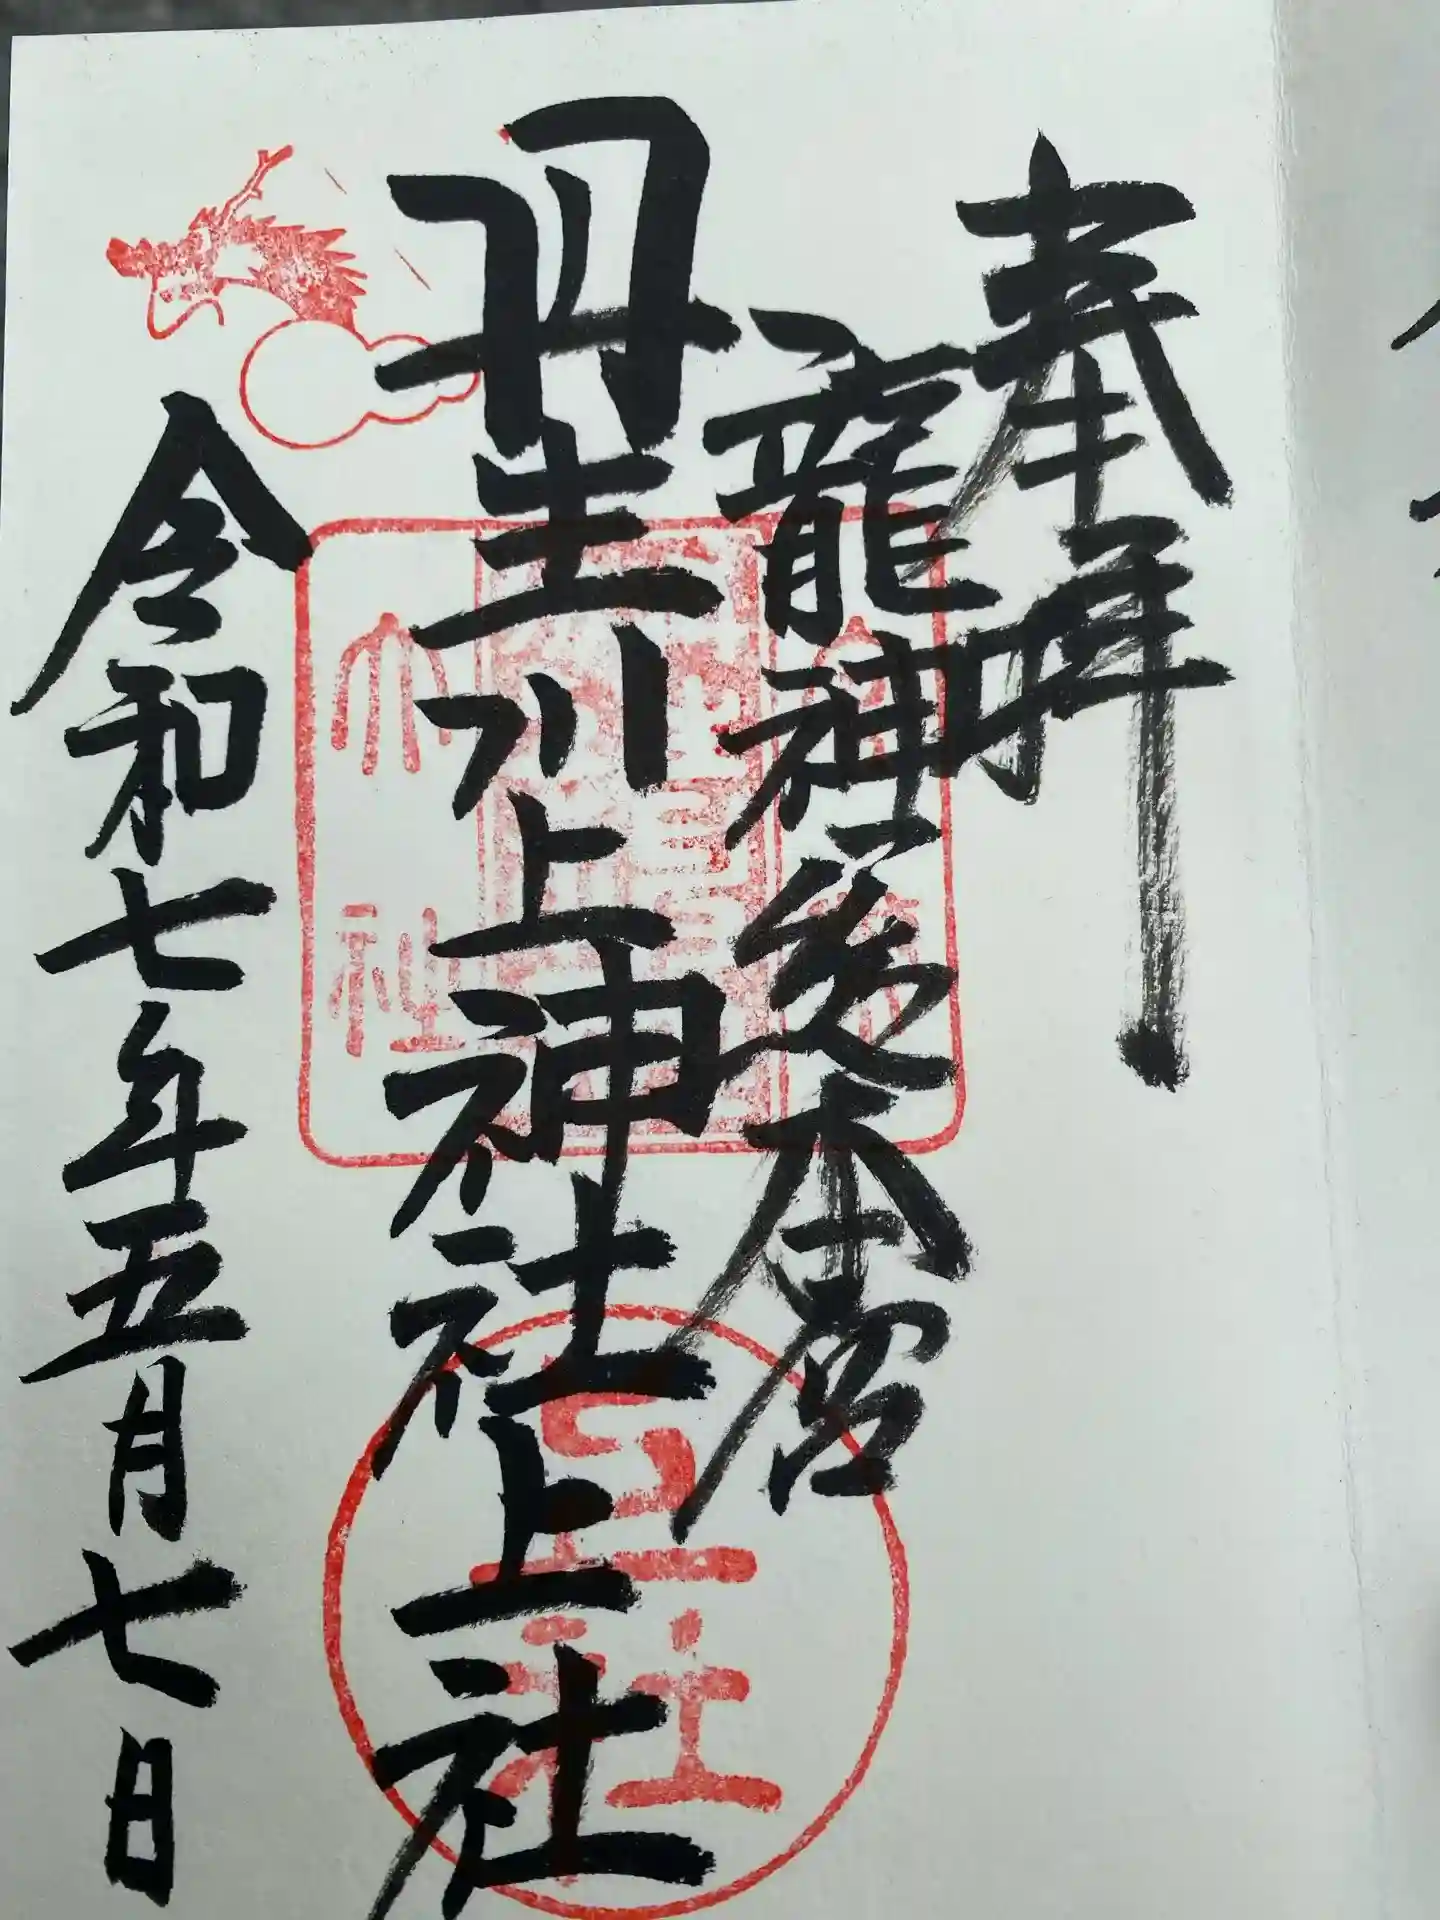 奉拝
龍神総本宮
丹生川上神社上社
令和七年五月七日
大社
上社